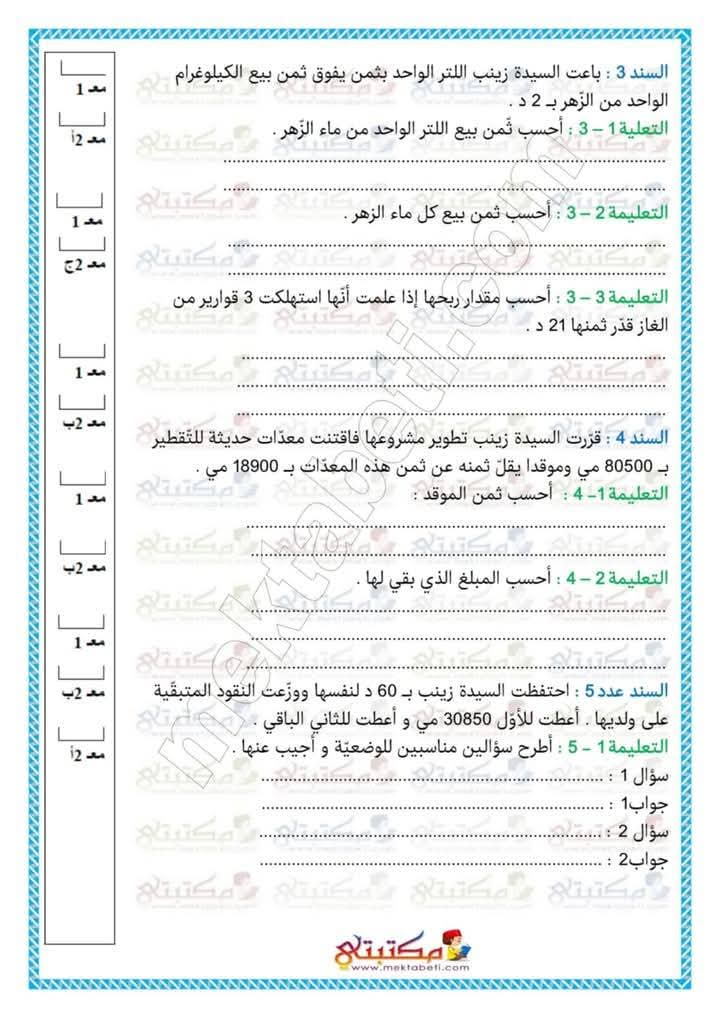 السند 3 : باعت السيدة زينب اللتر الواحد بثمن يفوق ثمن بيع الكيلوغرام
الواحد من الزّهر بـ 2 د .
التعلية 1 – 3 : أحسب ثّمن بيع اللتر الواحد من ماء الزّهر .
................................................................
................................................................
التعليمة 2 – 3 : أحسب ثمن بيع كل ماء الزهر .
................................................................
................................................................
التعليمة 3 – 3 : أحسب مقدار ربحها إذا علمت أنّها استهلكت 3 قوارير من
الغاز قدّر ثمنها 21 د .
................................................................
................................................................
................................................................
السند 4 : قرّرت السيدة زينب تطوير مشروعها فاقتنت معدّات حديثة للتّقطير
بـ 80500 مي وموقدا يقلّ ثمنه عن ثمن هذه المعدّات بـ 18900 مي .
التعليمة 1 – 4 : أحسب ثمن الموقد :
................................................................
................................................................
التعليمة 2 – 4 : أحسب المبلغ الذي بقي لها .
................................................................
................................................................
................................................................
السند عدد 5 : احتفظت السيدة زينب بـ 60 د لنفسها ووزّعت النقود المتبقّية
على ولديها . أعطت للأوّل 30850 مي و أعطت للثاني الباقي .
التعليمة 1 – 5 : أطرح سؤالين مناسبين للوضعيّة و أجيب عنها .
سؤال 1 : ................................................
جواب1 : ................................................
سؤال 2 : ................................................
جواب2 : ................................................
معـ 1
معـ 2أ
معـ 1
معـ 2ج
معـ 1
معـ 2ب
معـ 1
معـ 2ب
معـ 1
معـ 2ب
معـ 2أ
مكتبتي
www.mektabeti.com
mektabeti.com